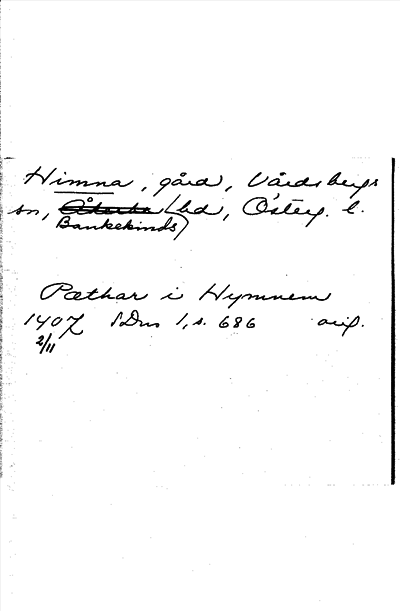 Himna, gård, Vårdsbergs
sn, Åkerbo hd, Österg. l.
Bankekinds)
Pæthar i Hymnem
1407 SDns 1, s. 686 orig.
2/11